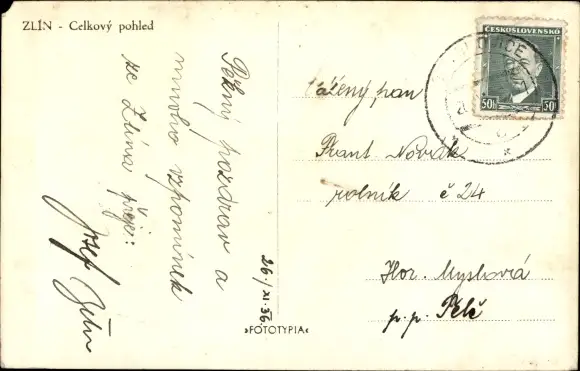 ZLÍN - Celkový pohled
Pěkný pozdrav a
mnoho vzpomínek
ze Zlína přeje:
Josef
26/XI.36
»FOTOTYPIA«
ČESKOSLOVENSKO
50h 50h
Vážený pan
Frant Novák
rolník č 24
Hor. Myslová
p.p. Telč